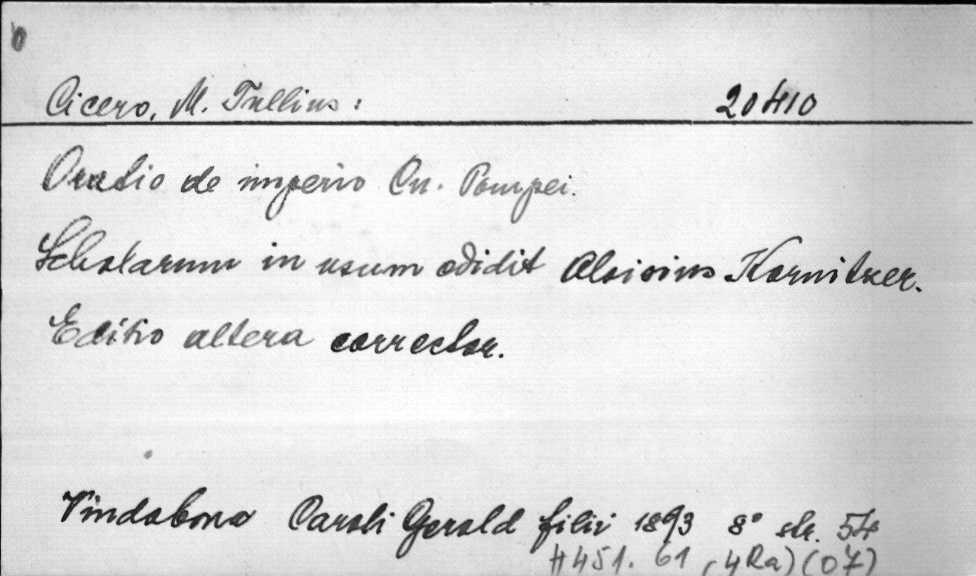 Cicero, M. Tullius: 20410
Oratio de imperio Cn. Pompei.
Scholarum in usum edidit Aloisius Kornitzer.
Editio altera correctior.
Vindobona Caroli Gerold filii 1893 8° str. 54
H451. 61 (4Ra)(07)